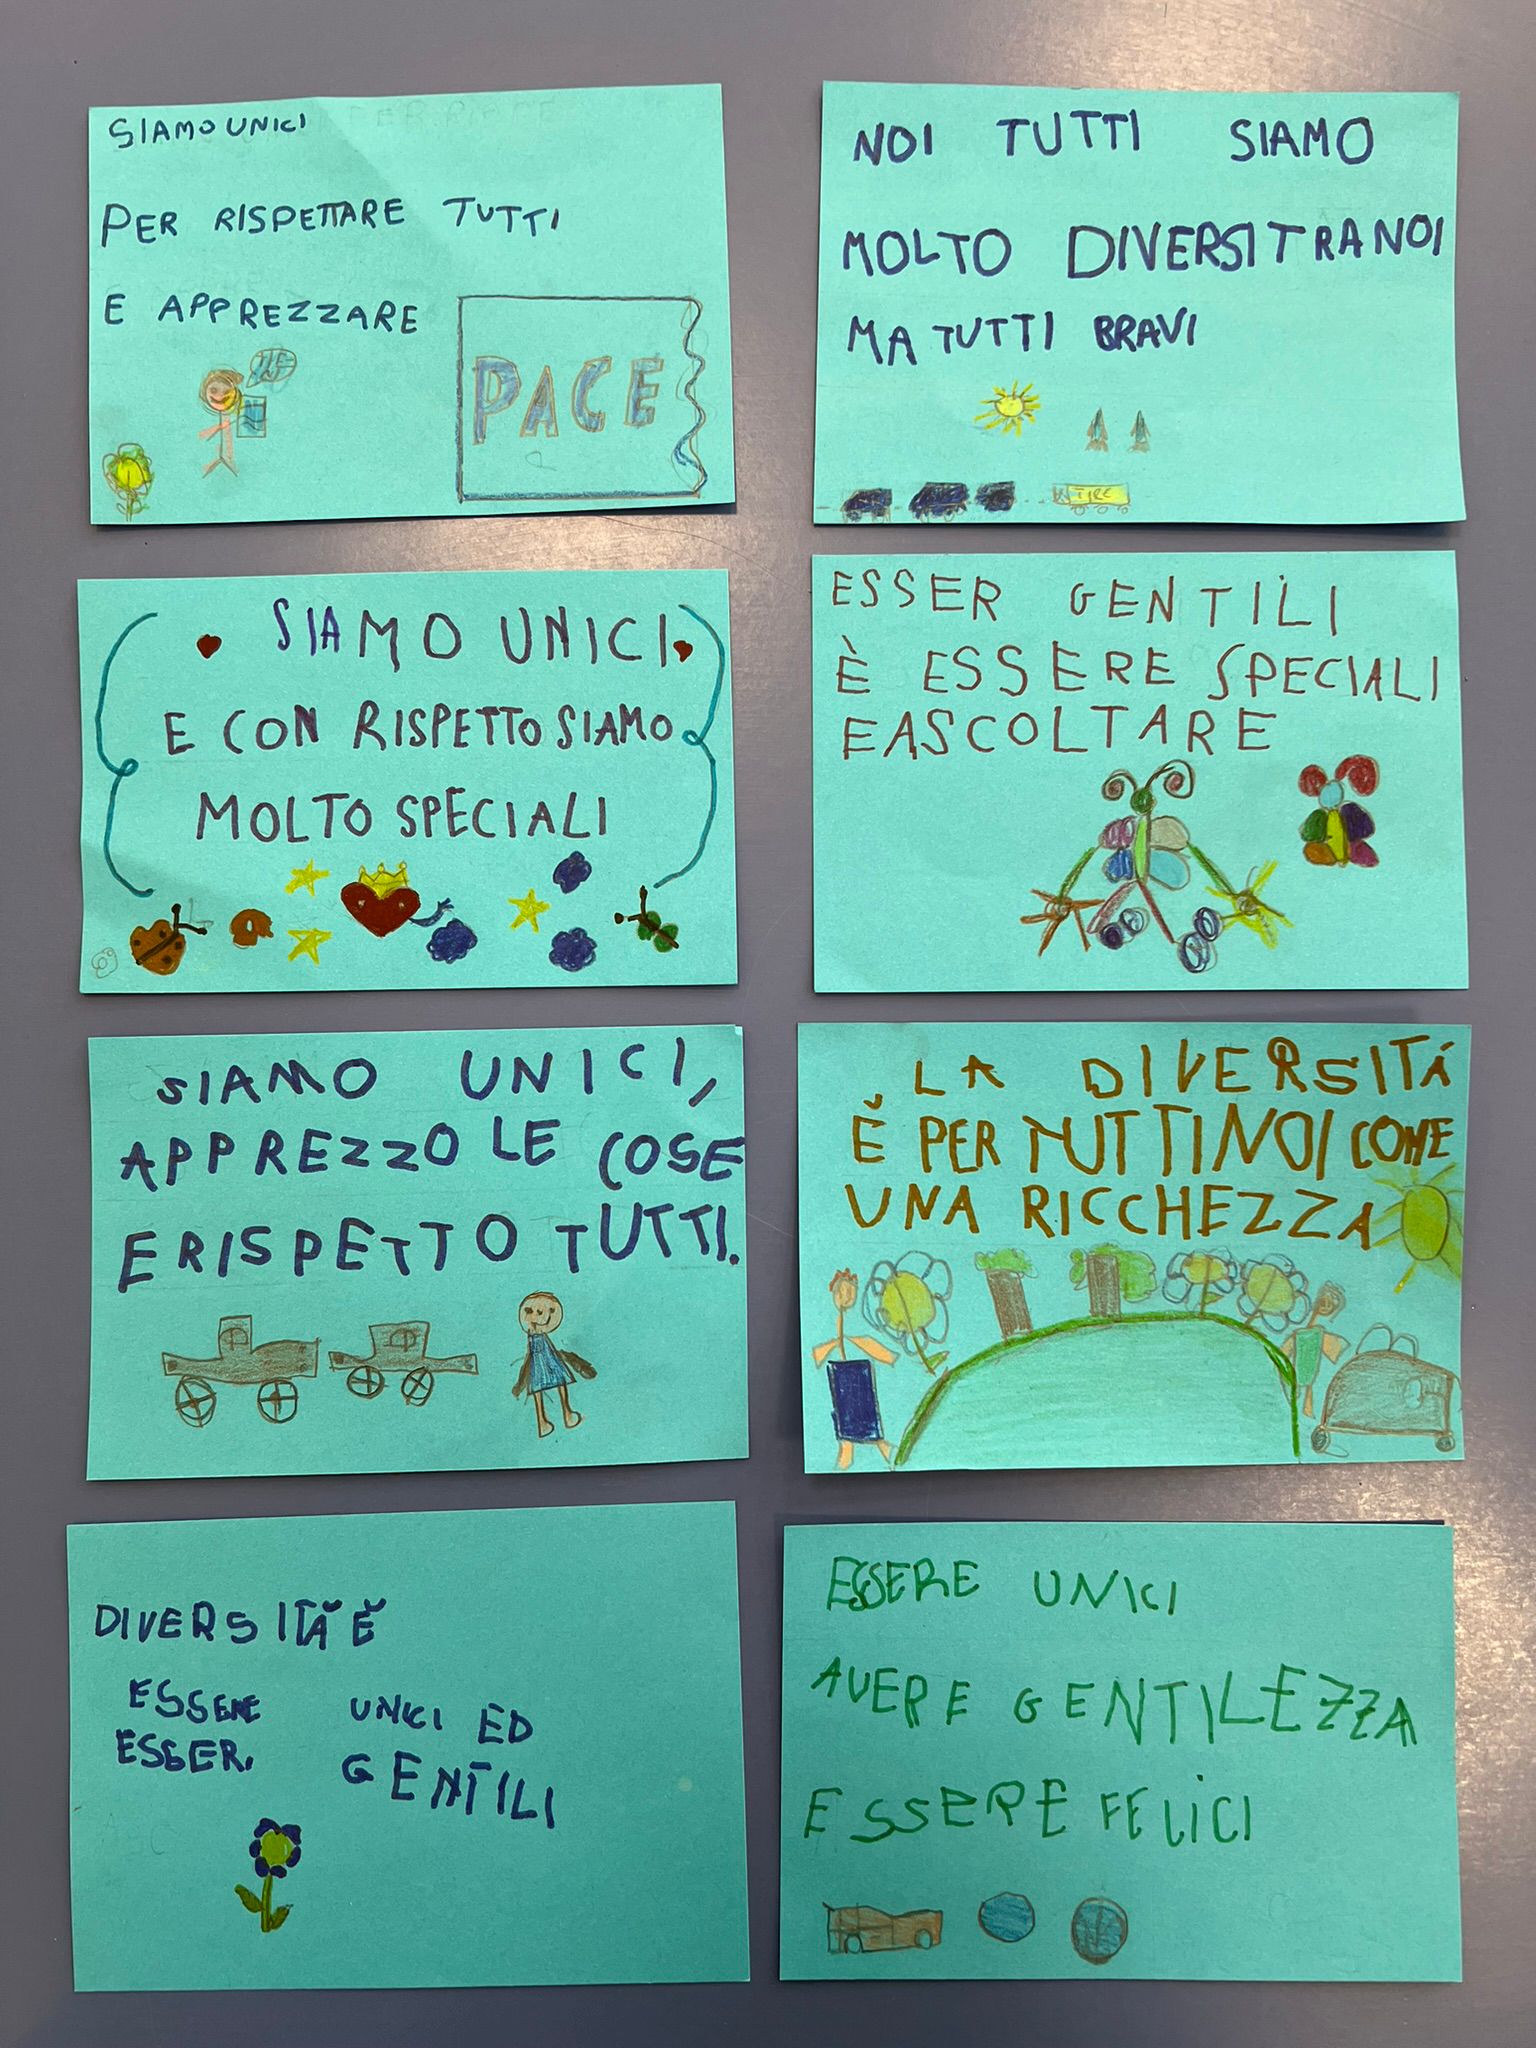 SIAMO UNICI
PER RISPETTARE TUTTI
E APPREZZARE
PACE
NOI TUTTI SIAMO
MOLTO DIVERSI TRA NOI
MA TUTTI BRAVI
SIAMO UNICI
E CON RISPETTO SIAMO
MOLTO SPECIALI
ESSER GENTILI
È ESSERE SPECIALI
E ASCOLTARE
SIAMO UNICI,
APPREZZO LE COSE
E RISPETTO TUTTI.
LA DIVERSITÁ
È PER TUTTI NOI COME
UNA RICCHEZZA
DIVERSITÀ È
ESSERE UNICI ED
ESSER. GENTILI
ESSERE UNICI
AVERE GENTILEZZA
ESSERE FELICI